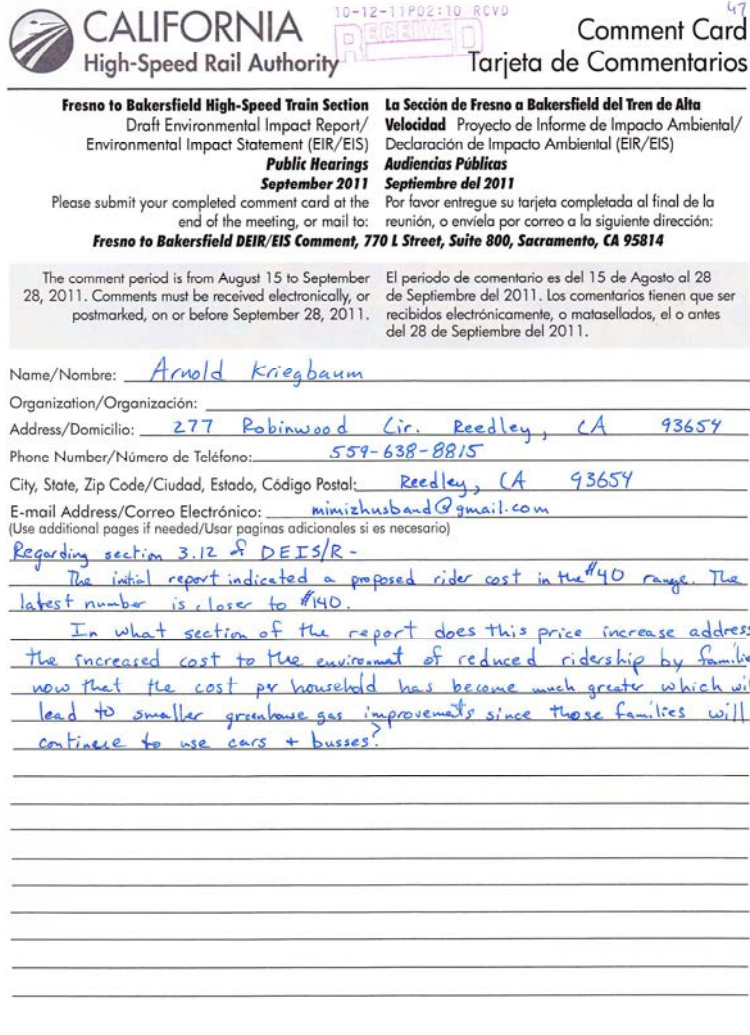 10-12-11P02:10 RCVD
47
RECEIVED
CALIFORNIA
High-Speed Rail Authority
Comment Card
Tarjeta de Commentarios
Fresno to Bakersfield High-Speed Train Section
Draft Environmental Impact Report/
Environmental Impact Statement (EIR/EIS)
Public Hearings
September 2011
Please submit your completed comment card at the
end of the meeting, or mail to:
La Sección de Fresno a Bakersfield del Tren de Alta
Velocidad Proyecto de Informe de Impacto Ambiental/
Declaración de Impacto Ambiental (EIR/EIS)
Audiencias Públicas
Septiembre del 2011
Por favor entregue su tarjeta completada al final de la
reunión, o envíela por correo a la siguiente dirección:
Fresno to Bakersfield DEIR/EIS Comment, 770 L Street, Suite 800, Sacramento, CA 95814
The comment period is from August 15 to September
28, 2011. Comments must be received electronically, or
postmarked, on or before September 28, 2011.
El periodo de comentario es del 15 de Agosto al 28
de Septiembre del 2011. Los comentarios tienen que ser
recibidos electrónicamente, o matasellados, el o antes
del 28 de Septiembre del 2011.
Name/Nombre: Arnold Kriegbaum
Organization/Organización:
Address/Domicilio: 277 Robinwood Cir. Reedley, CA 93654
Phone Number/Número de Teléfono: 559-638-8815
City, State, Zip Code/Ciudad, Estado, Código Postal: Reedley, CA 93654
E-mail Address/Correo Electrónico: mimizhusband@gmail.com
(Use additional pages if needed/Usar paginas adicionales si es necesario)
Regarding section 3.12 of DEIS/R -
The initial report indicated a proposed rider cost in the $40 range. The
latest number is closer to $140.
In what section of the report does this price increase address
the increased cost to the enviromnt of reduced ridership by familie
now that the cost per household has become much greater which wil
lead to smaller greenhouse gas improvemats since those families will
continue to use cars + busses?